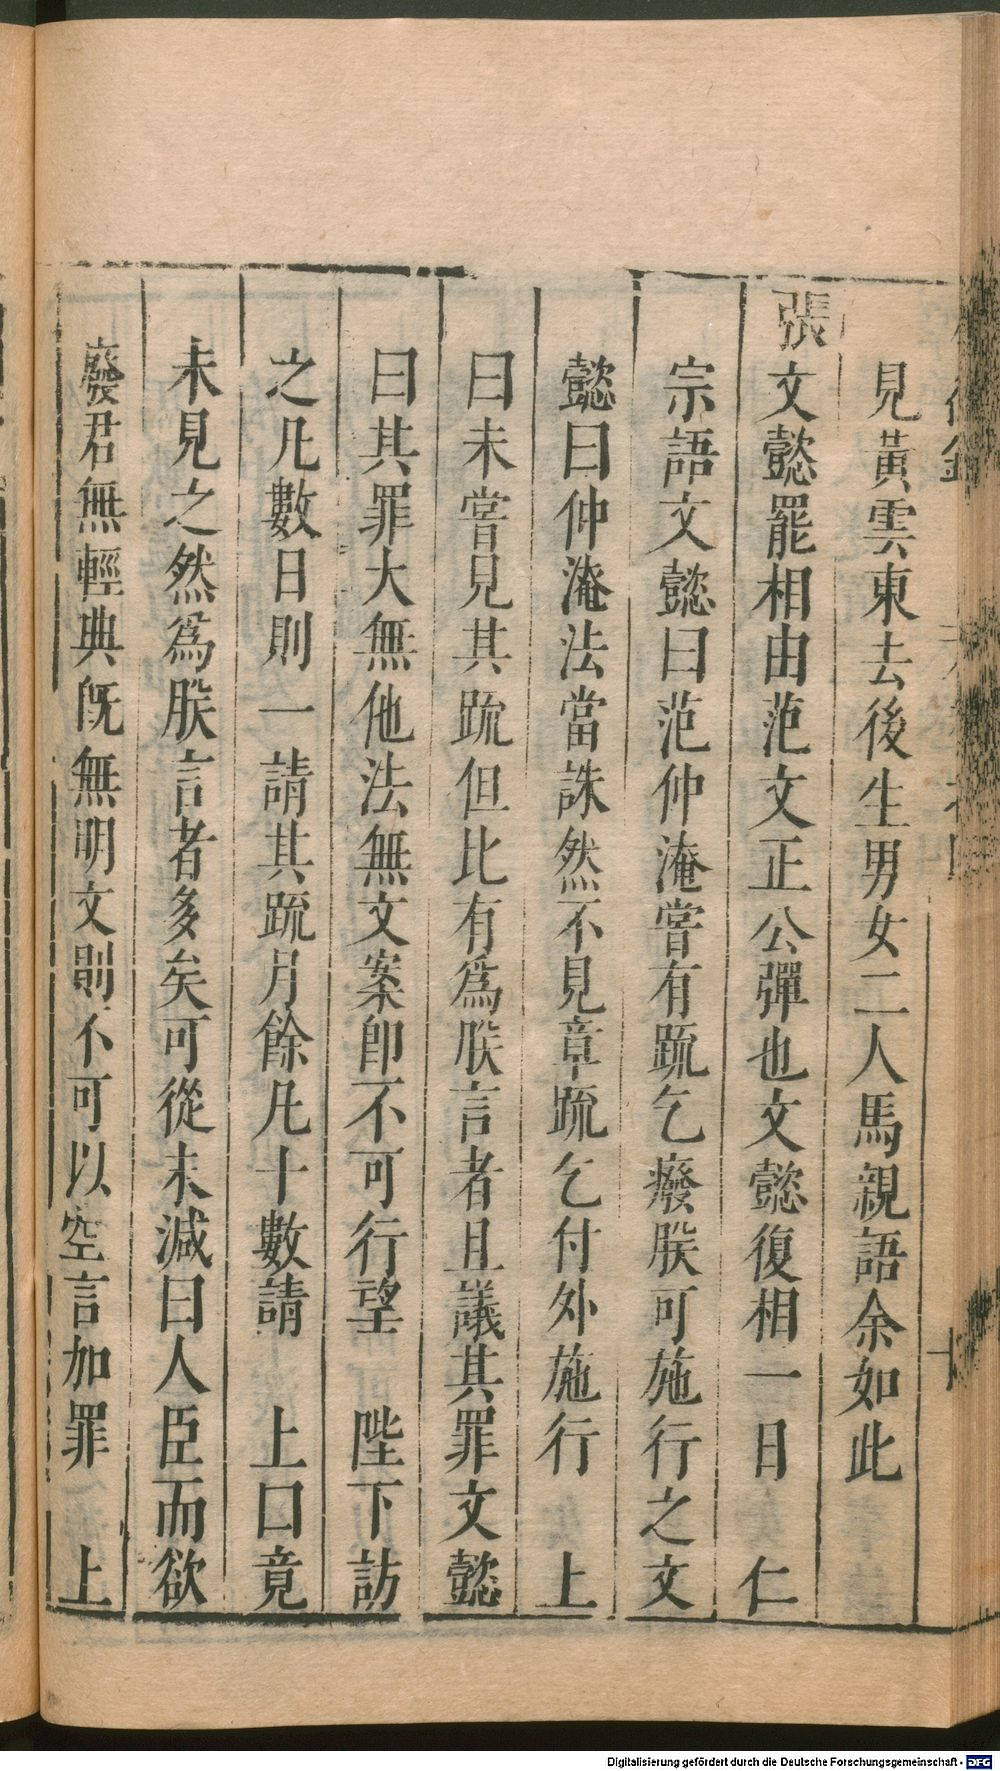 見黃雲東去後生男女二人馬親語余如此
張文懿罷相由范文正公彈也文懿復相一日 仁
宗語文懿曰范仲淹嘗有疏乞廢朕可施行之文
懿曰仲淹法當誅然不見章疏乞付外施行 上
曰未嘗見其疏但比有為朕言者且議其罪文懿
曰其罪大無他法無文案卽不可行望 陛下訪
之凡數日則一請其疏月餘凡十數請 上曰竟
未見之然為朕言者多矣可從末減曰人臣而欲
廢君無輕典旣無明文則不可以空言加罪 上
十
Digitalisierung gefördert durch die Deutsche Forschungsgemeinschaft - DFG